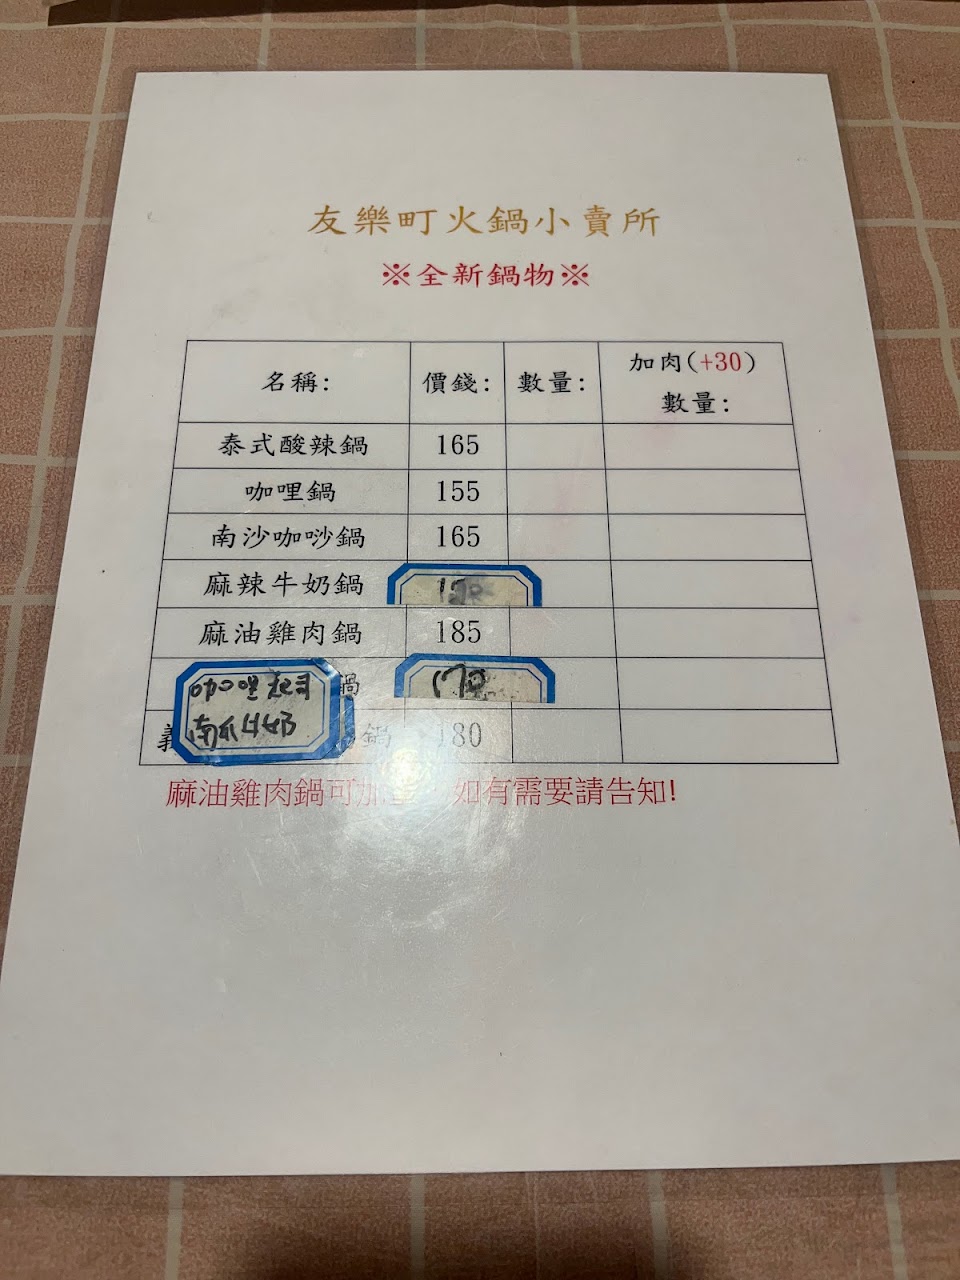 友樂町火鍋小賣所
※全新鍋物※
名稱: 價錢: 數量: 加肉(+30) 數量:
泰式酸辣鍋 165
咖哩鍋 155
南沙咖唦鍋 165
麻辣牛奶鍋
麻油雞肉鍋 185
咖哩起司 鍋 170
義 南瓜牛奶 鍋 180
麻油雞肉鍋可加 如有需要請告知!